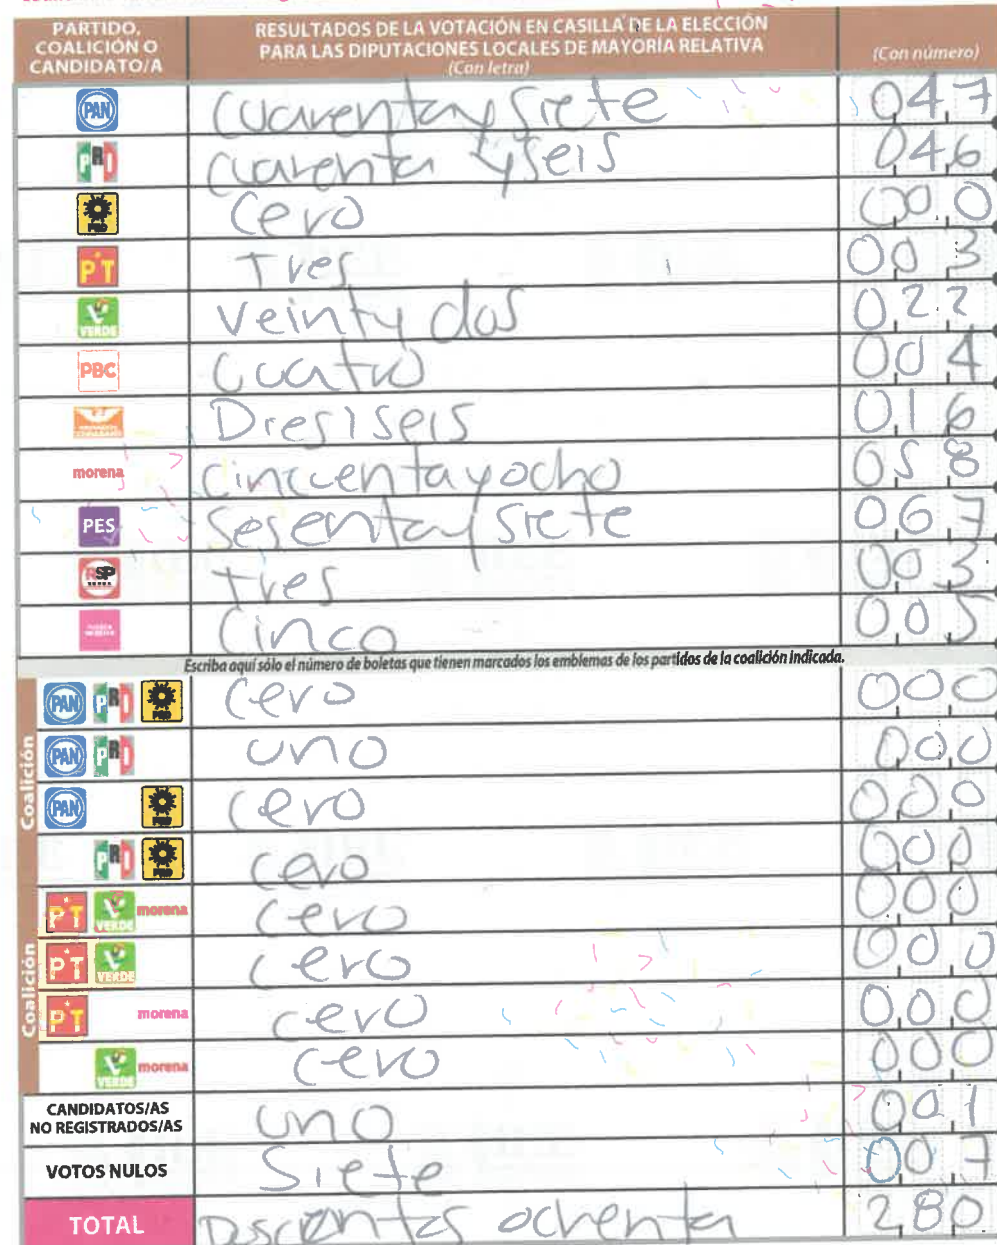 PARTIDO, COALICIÓN O CANDIDATO/A
RESULTADOS DE LA VOTACIÓN EN CASILLA DE LA ELECCIÓN PARA LAS DIPUTACIONES LOCALES DE MAYORÍA RELATIVA
(Con letra)
(Con número)
PAN cuarenta y siete 047
PRI cuarenta y seis 046
PRD cero 000
PT Tres 003
VERDE veinty dos 022
PBC cuatro 004
MOVIMIENTO CIUDADANO Dresiseis 016
morena cincuenta y ocho 058
PES sesenta y siete 067
RSP tres 003
cinco 005
Escriba aquí sólo el número de boletas que tienen marcados los emblemas de los partidos de la coalición indicada.
Coalición
PAN PRI PRD cero 000
PAN PRI uno 000
PAN PRD cero 000
PRI PRD cero 000
Coalición
PT VERDE morena cero 000
PT VERDE cero 000
PT morena cero 000
VERDE morena cero 000
CANDIDATOS/AS NO REGISTRADOS/AS uno 001
VOTOS NULOS Siete 007
TOTAL Doscientos ochenta 280